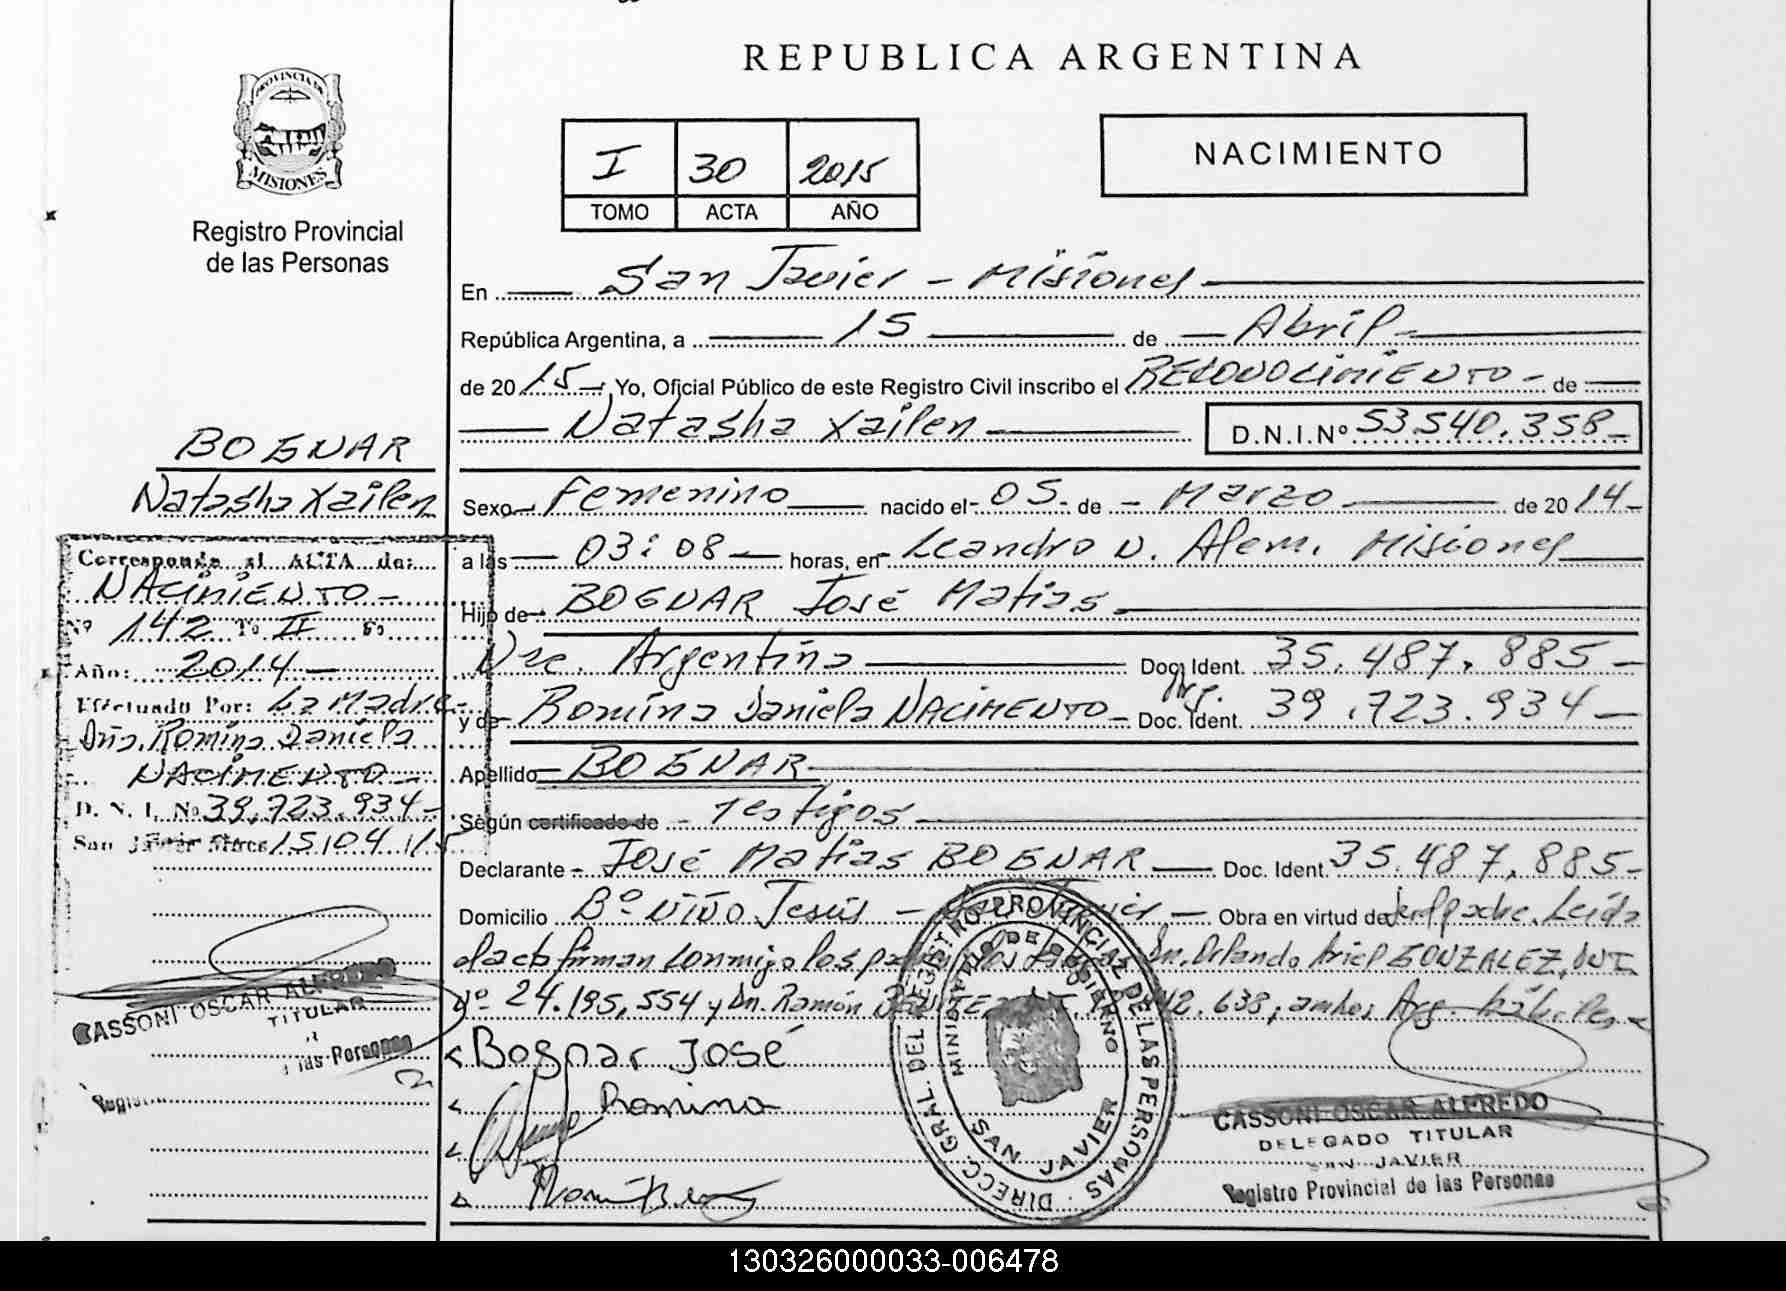 REPUBLICA ARGENTINA
PROVINCIA DE
MISIONES
Registro Provincial
de las Personas
I 30 2015
TOMO ACTA AÑO
NACIMIENTO
En San Javier - Misiones
República Argentina, a 15 de Abril
de 2015 Yo, Oficial Público de este Registro Civil inscribo el RECONOCIMIENTO - de
Natasha Xailen D.N.I.Nº 53.540.358
Sexo Femenino nacido el 05 de Marzo de 2014
a las 03:08 horas, en Leandro N. Alem. Misiones
Hijo de BOGNAR José Matias
Nac. Argentina Doc. Ident. 35.487.885
Arg.
y de Romina Daniela NACIMENTO Doc. Ident. 39.723.934
Apellido BOGNAR
Según certificado de Testigos
Declarante José Matias BOGNAR Doc. Ident. 35.487.885
Domicilio Bº NIÑO Jesús - San Javier Obra en virtud de ser el padre. Leída
el acta firman conmigo los Dn. Orlando Ariel GONZALEZ, DNI
Nº 24.195.554 y Dn. Ramón 638, ambos Arg. háb.
Bognar José
Romina
BOGNAR
Natasha Xailen
Corresponde al ACTA de:
NACIMIENTO -
Nº 142 Tº II Fº
Año: 2014
Efectuado Por: La Madre
Dña. Romina Daniela
NACIMENTO
D. N. I. Nº 39.723.934
San Javier Mnes 15/04/15
CASSONI OSCAR ALFREDO
TITULAR
las Personas
DIRECC. GRAL. DEL REGISTRO PROVINCIAL DE LAS PERSONAS
MINISTERIO DE GOBIERNO
SAN JAVIER
CASSONI OSCAR ALFREDO
DELEGADO TITULAR
SAN JAVIER
Registro Provincial de las Personas
130326000033-006478